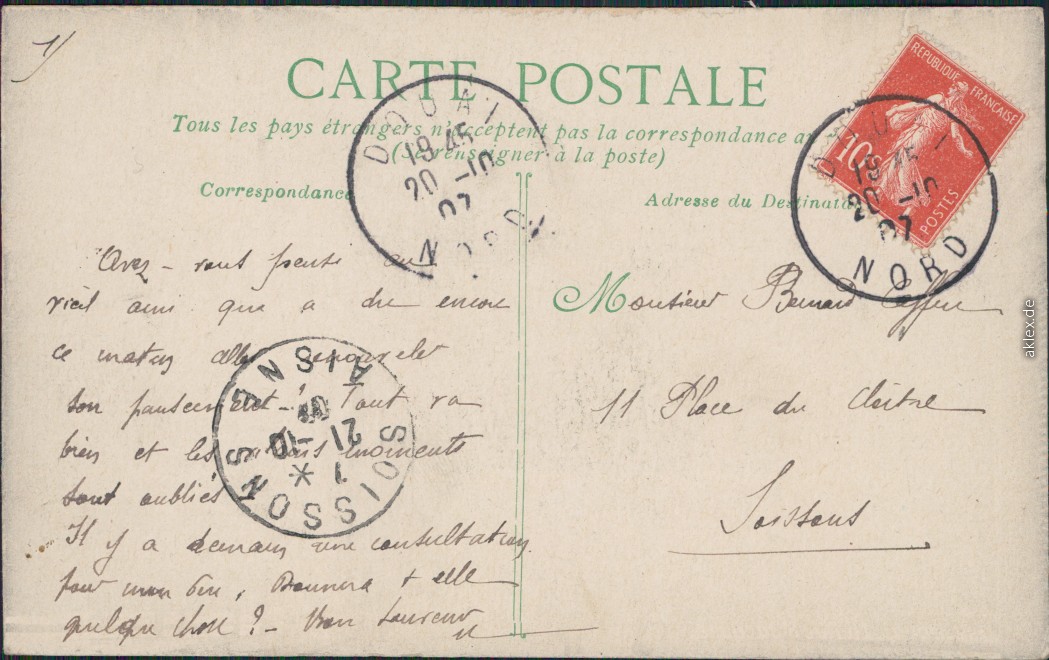 1/
CARTE POSTALE
Tous les pays étrangers n'acceptent pas la correspondance au
(Se renseigner à la poste)
Correspondance
Adresse du Destinata
RÉPUBLIQUE FRANÇAISE
10
POSTES
DOUAI
18 45
20 -10
07
NORD
DOUAI
18 45
20 -10
07
NORD
Avez-vous pensé au
vieil ami que a du encore
ce matin aller renouveler
son pansement-? Tout va
bien et les moments
sont oubliés
Il y a demain une consultation
pour mon Donnera t elle
quelque chose ?- Bon
SOISSONS
AISNE
1 *
21 -10
07
Monsieur Bernard
11 Place du Cloitre
Soissons
aklex.de